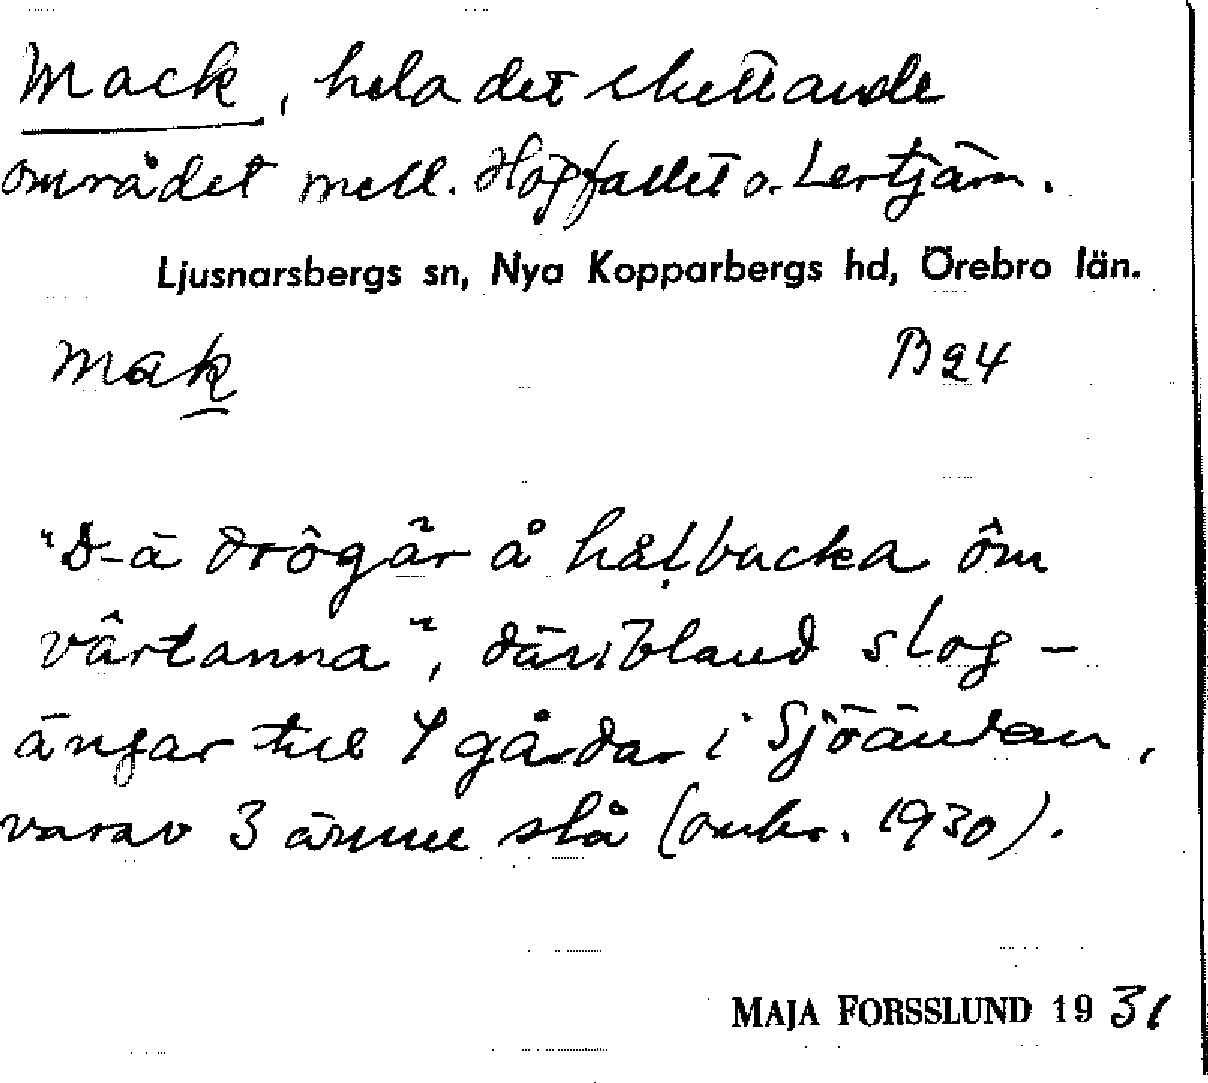 Mack, hela det sluttande
området mell. Högfallet o. Lertjärn.
Ljusnarsbergs sn, Nya Kopparbergs hd, Örebro län.
mak B24
"D-ä drôgår å hålbacka ôm
vârtanna", däribland slog-
ängar till 4 gårdar i Sjöändan,
varav 3 ännu slå (omkr. 1930).
MAJA FORSSLUND 1931